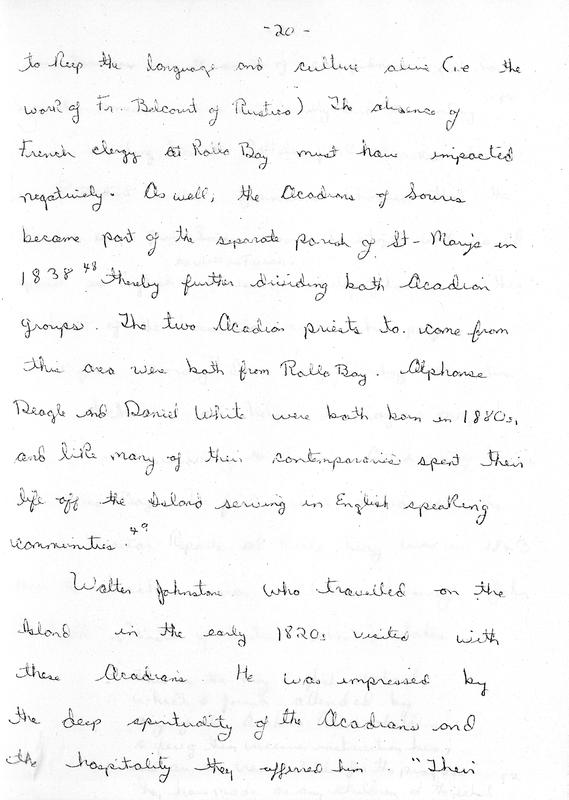 -20-
to keep the language and culture alive (i.e the
work of Fr. Belcourt of Rustico) The absence of
French clergy at Rollo Bay must have impacted
negatively. As well, the Acadians of Souris
became part of the separate parish of St-Mary's in
1838 48 thereby further dividing both Acadian
groups. The two Acadian priests to come from
this area were both from Rollo Bay. Alphonse
Deagle and Daniel White were both born in 1880s,
and like many of their contemporaries spent their
life off the Island serving in English speaking
communities. 49
Walter Johnstone who travelled on the
Island in the early 1820s visited with
these Acadians. He was impressed by
the deep spirituality of the Acadians and
the hospitality they offered him. "Their